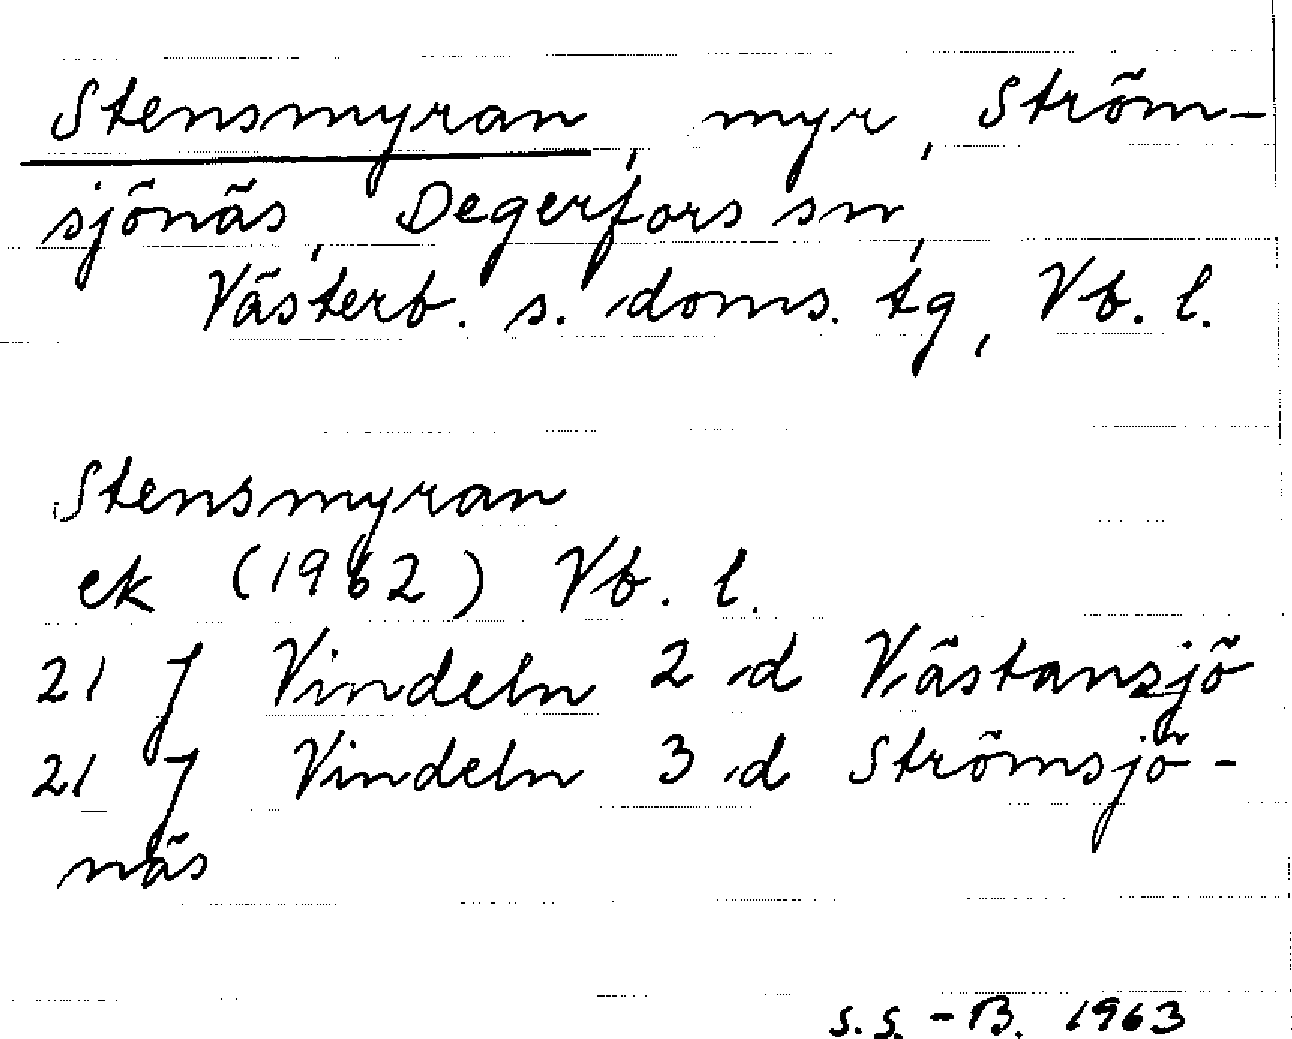 Stensmyran, myr, Ström-
sjönäs, Degerfors sn,
Västerb. s. doms. tg, Vb. l.
Stensmyran
ek (1962) Vb. l.
21 J Vindeln 2 d Västansjö
21 J Vindeln 3 d Strömsjö-
näs
S.S.-B. 1963